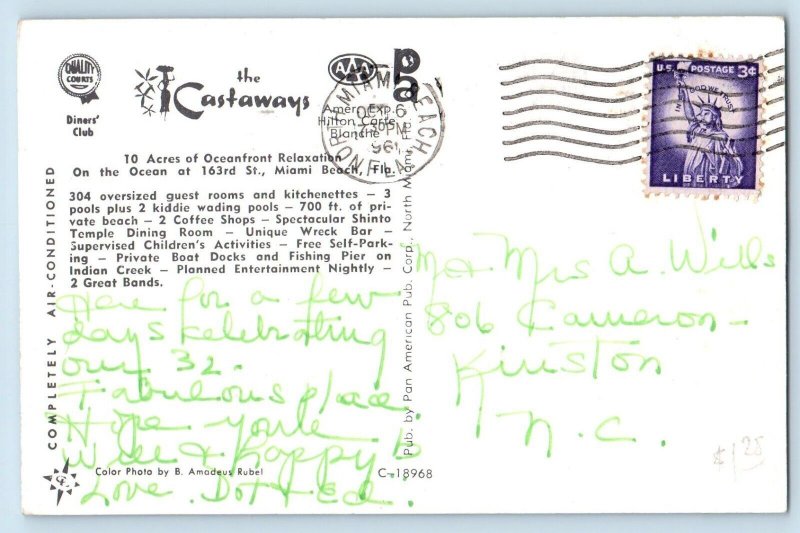 QUALITY
COURTS
Diners'
Club
the
Castaways
AAA
Amer. Exp.
Hilton Carte
Blanche
10 Acres of Oceanfront Relaxation
On the Ocean at 163rd St., Miami Beach, Fla.
304 oversized guest rooms and kitchenettes — 3
pools plus 2 kiddie wading pools — 700 ft. of pri-
vate beach — 2 Coffee Shops — Spectacular Shinto
Temple Dining Room — Unique Wreck Bar —
Supervised Children's Activities — Free Self-Park-
ing — Private Boat Docks and Fishing Pier on
Indian Creek — Planned Entertainment Nightly —
2 Great Bands.
COMPLETELY AIR-CONDITIONED
Here for a few
days celebrating
our 32.
Fabulous place.
Hope you're
Well & happy
Love. Dot & Ed.
Color Photo by B. Amadeus Rubel
C-18968
Pub. by Pan American Pub. Corp., North Miami, Fla.
NORTH MIAMI BEACH
FLA.
6
PM
1961
U.S. POSTAGE 3¢
IN GOD WE TRUST
LIBERTY
Mr + Mrs A. Wells
806 Cameron -
Kinston
N.C.
$1.25